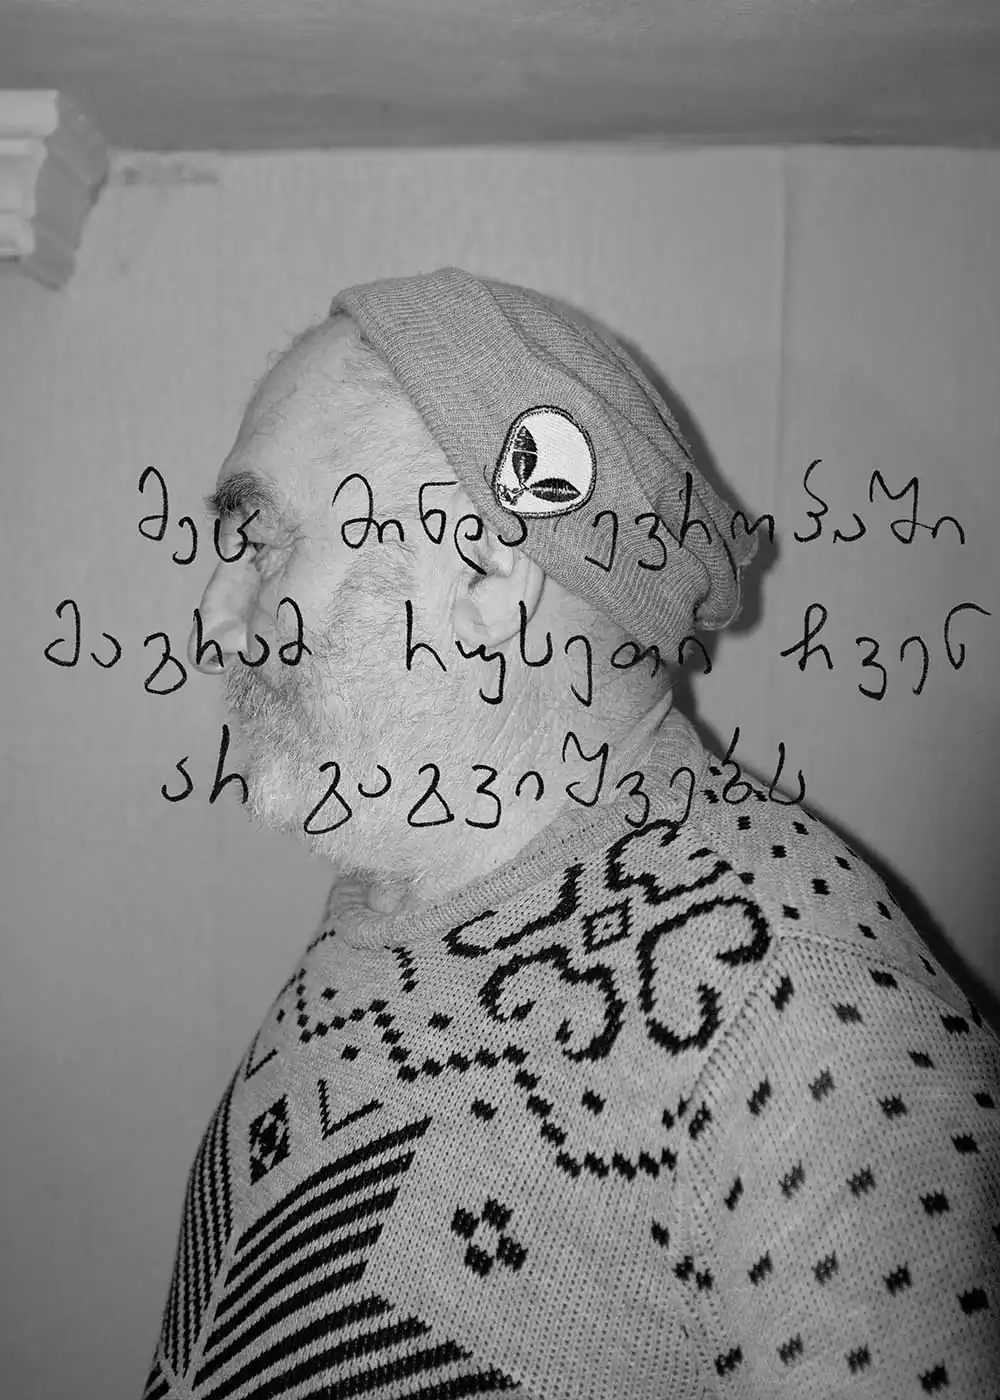 მეც მინდა ევროპაში
მაგრამ რუსეთი ჩვენ
არ გაგვიშვებს